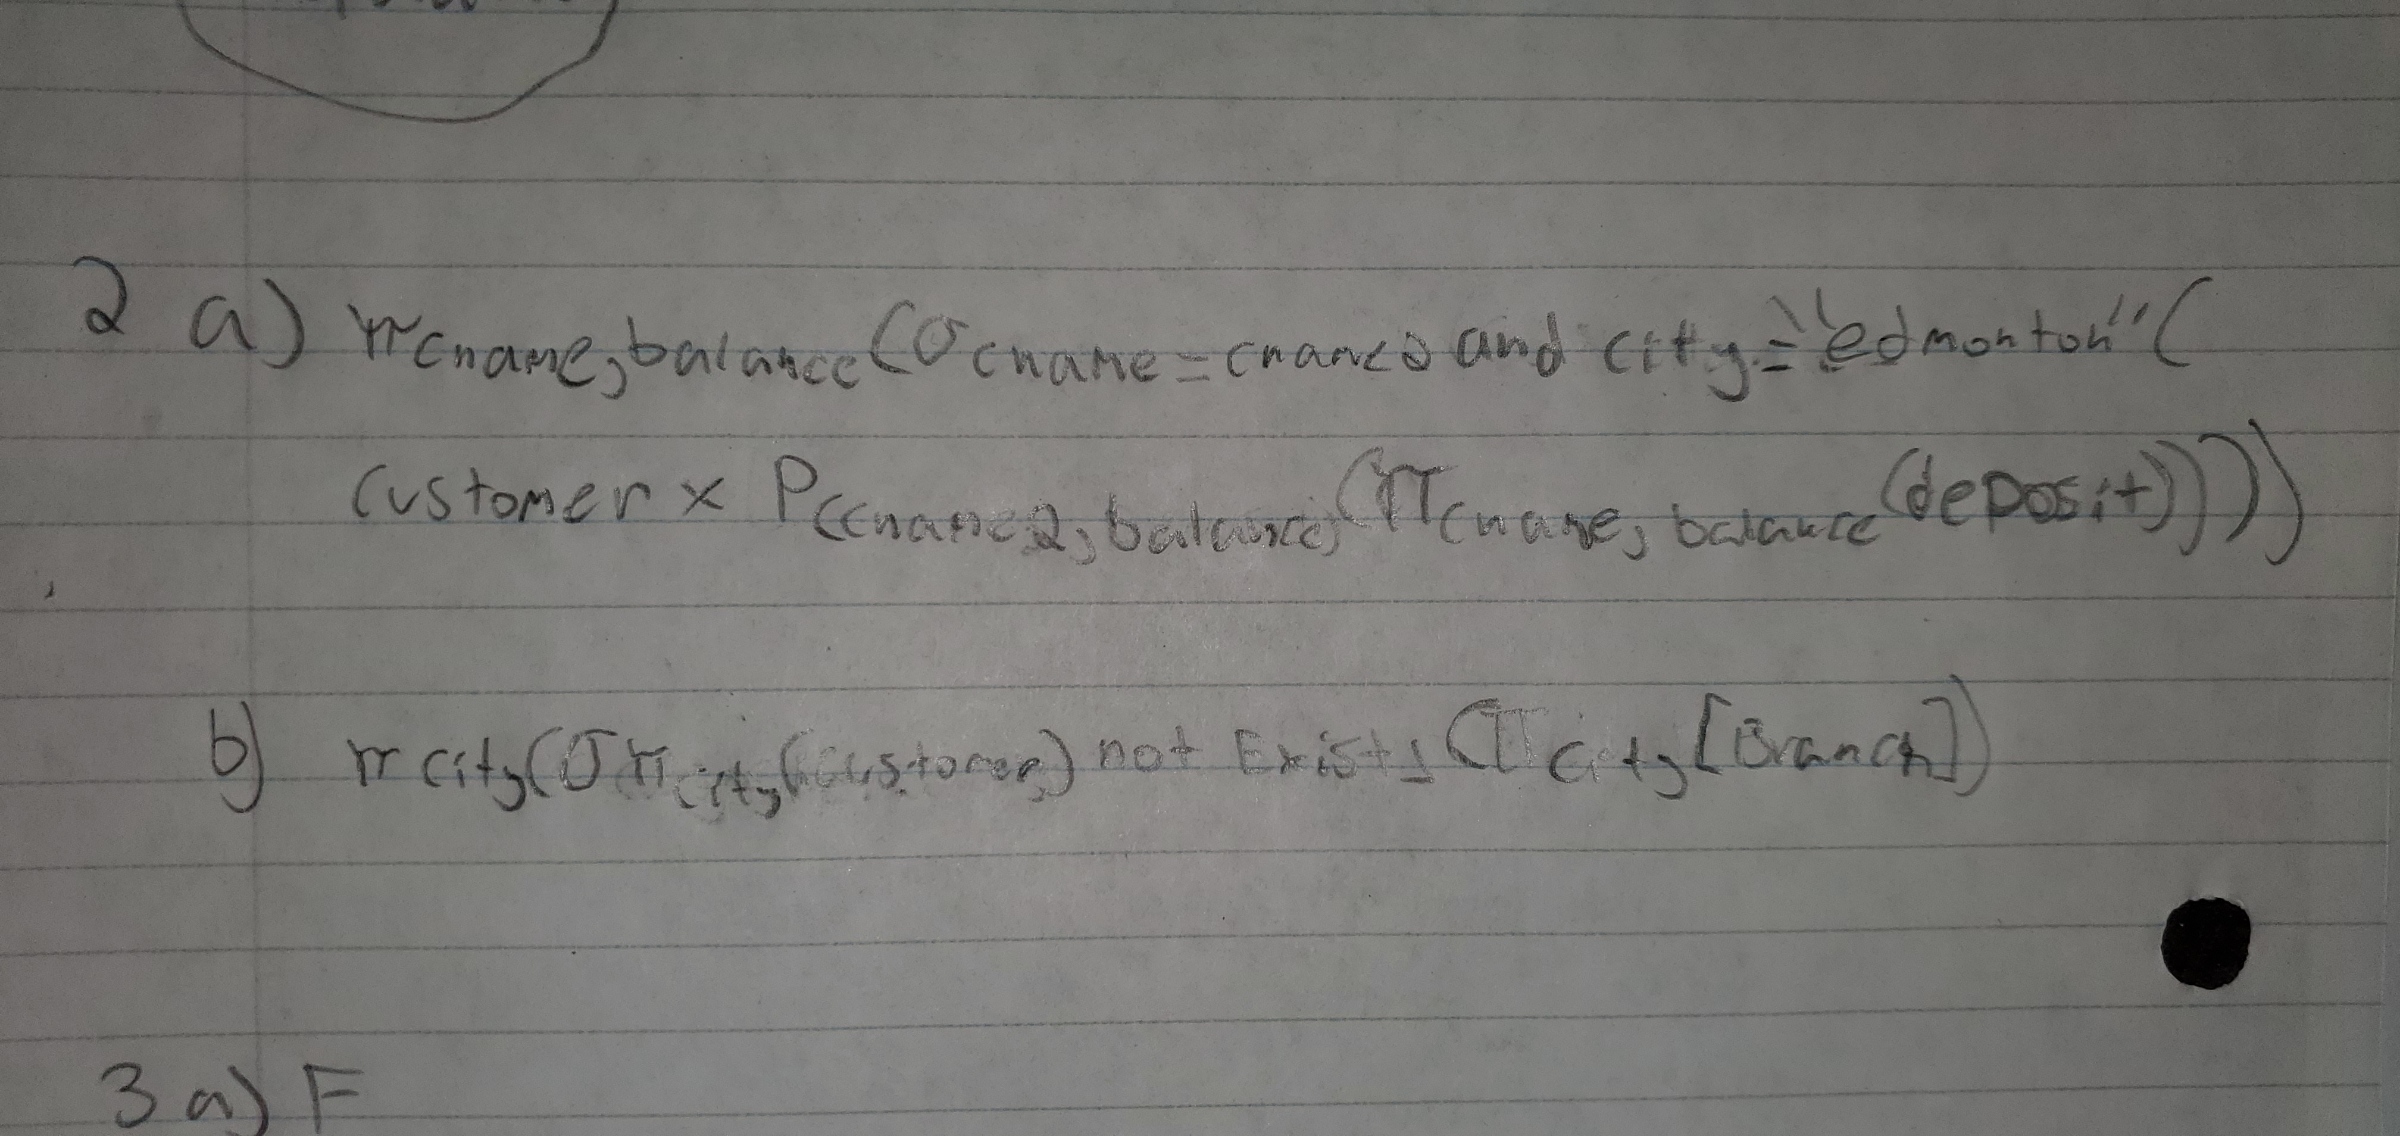 2 a) πcname,balance(σcname=cname2 and city="edmonton"(
customer x ρ(cname2,balance)(πcname,balance(deposit))))
b) π city(σπcity(customer) not Exists(πcity(Branch))
3 a) F